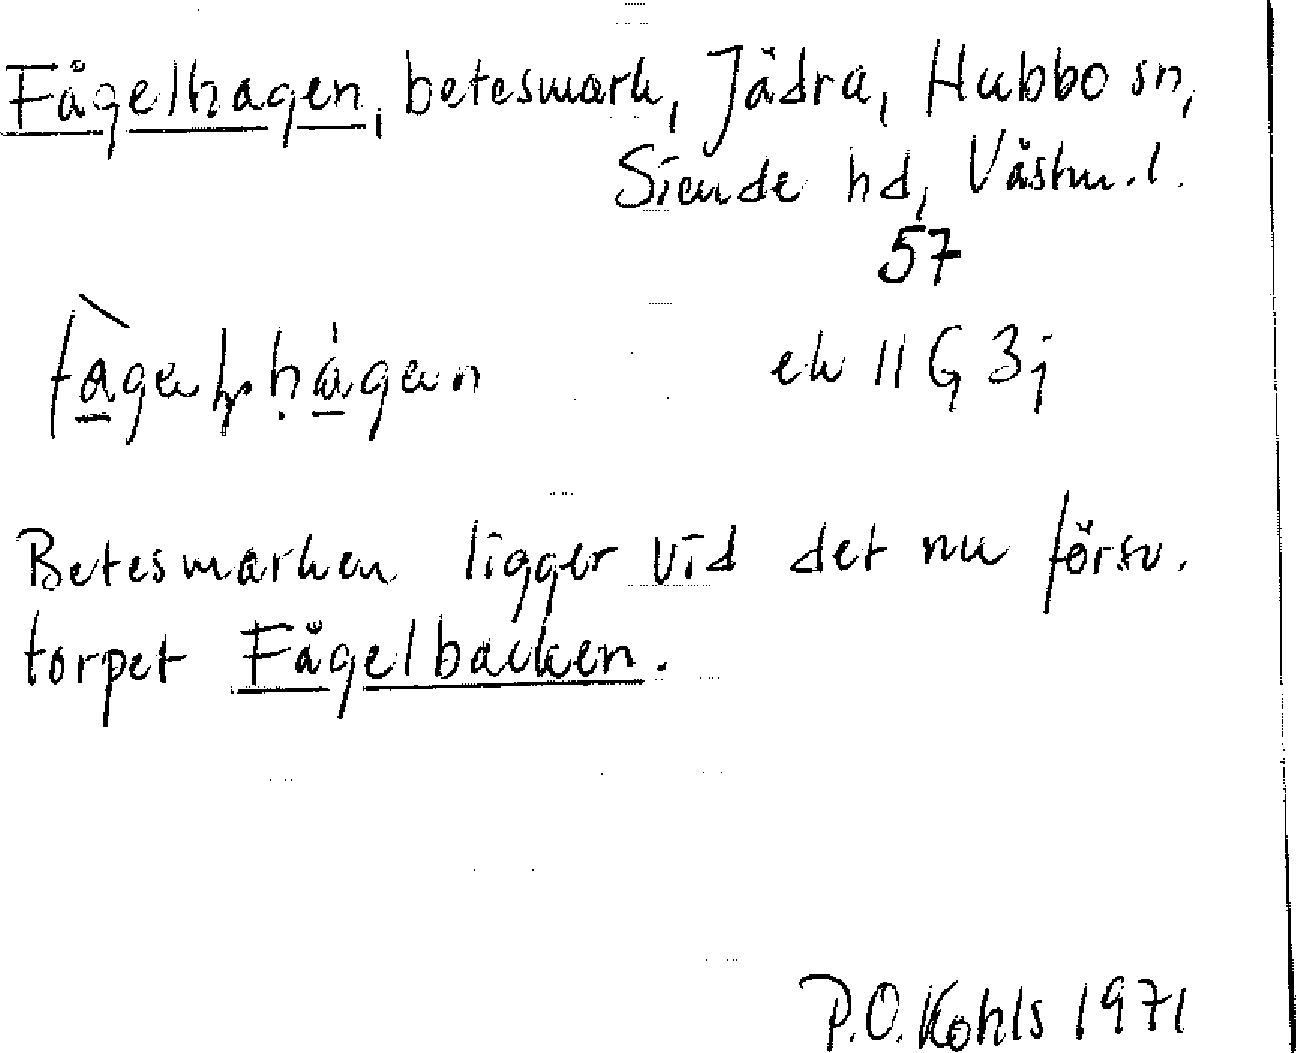 Fågelhagen, betesmark, Jädra, Hubbo sn,
Siende hd, Västm.l.
57
ek 11G 3j
Betesmarken ligger vid det nu försv.
torpet Fågelbacken.
P.O. Kohls 1971